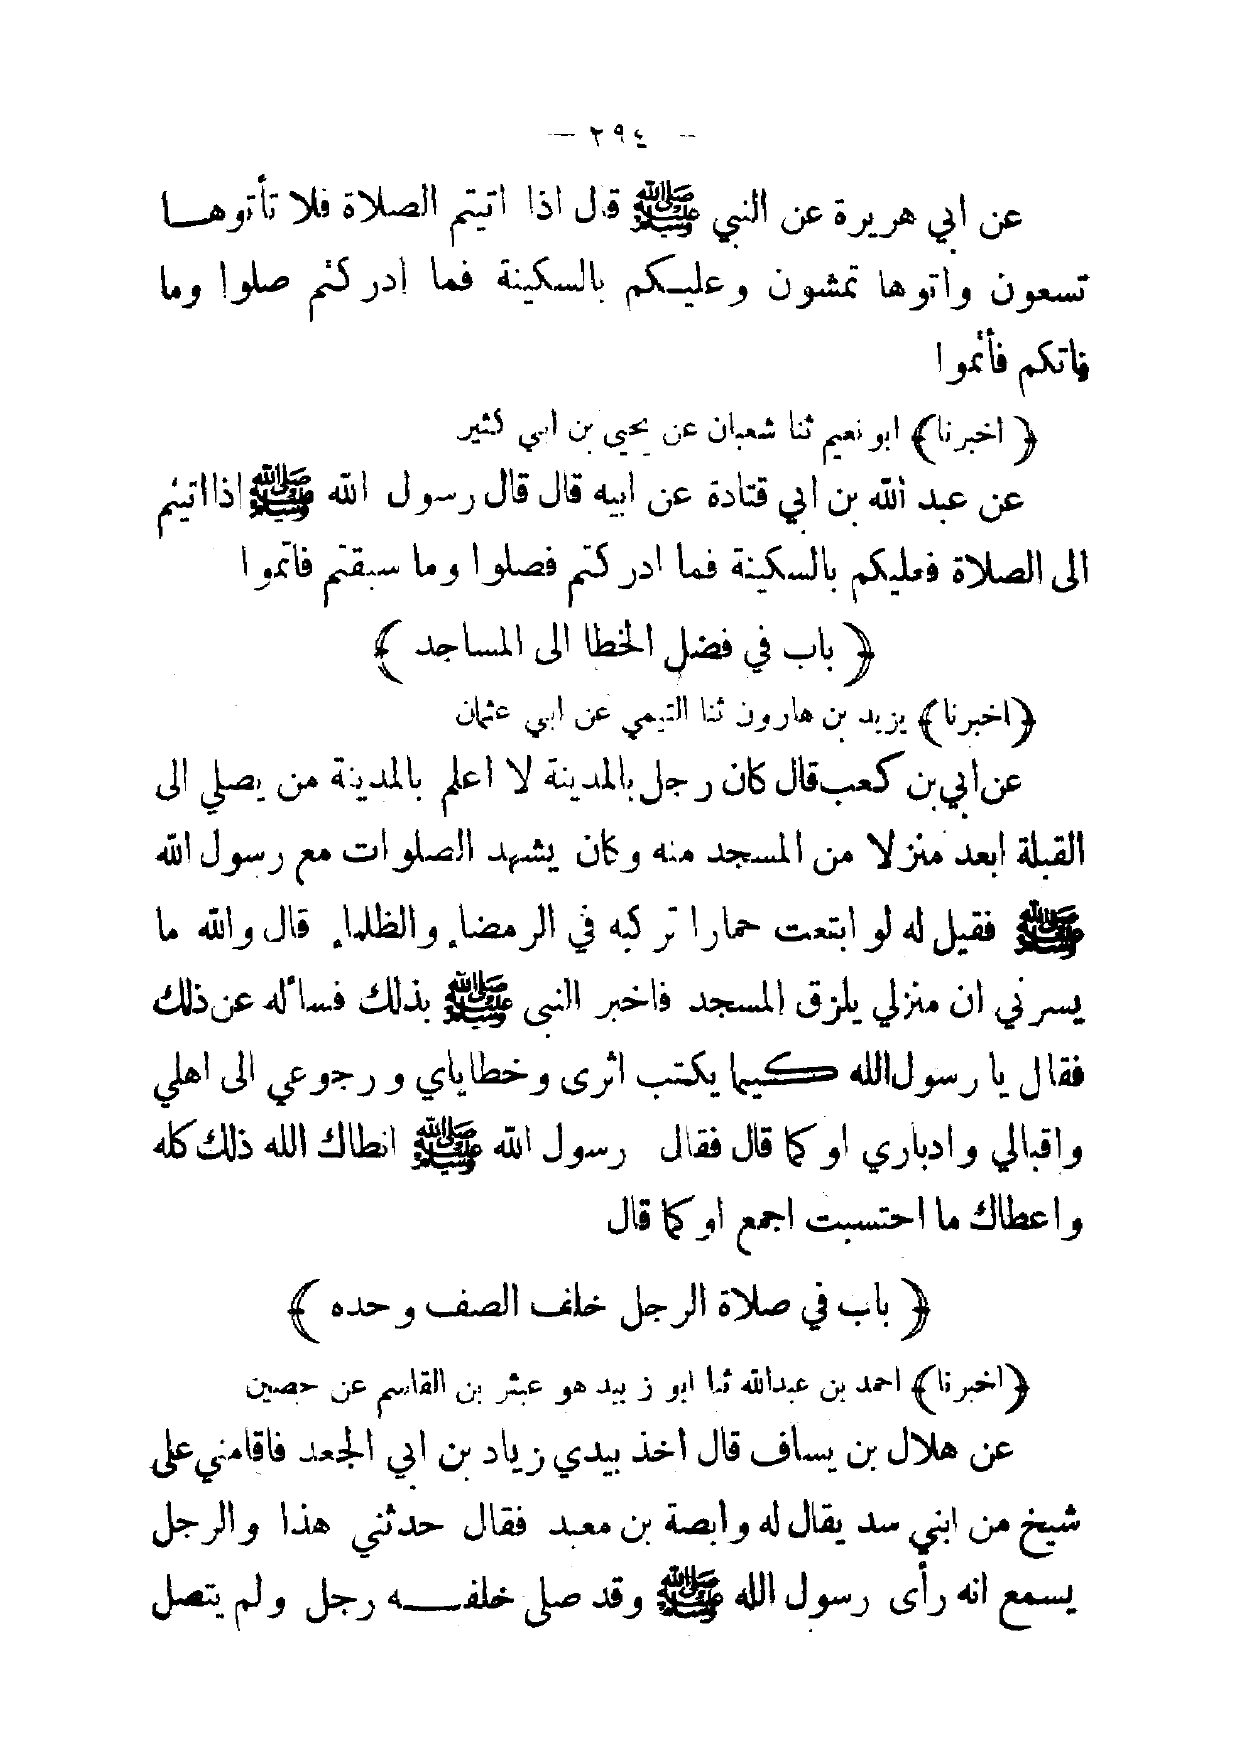 — ٢٩٤ —
عن ابي هريرة عن النبي ﷺ قال اذا اتيتم الصلاة فلا تأتوهــا
تسعون واتوها تمشون وعليكم بالسكينة فما ادركتم صلوا وما
فاتكم فأتموا
﴿ اخبرنا﴾ ابو نعيم ثنا شعبان عن يحيى بن ابي كثير
عن عبد الله بن ابي قتادة عن ابيه قال قال رسول الله ﷺ اذا اتيتم
الى الصلاة فعليكم بالسكينة فما ادركتم فصلوا وما سبقتم فاتموا
﴿ باب في فضل الخطا الى المساجد ﴾
﴿اخبرنا﴾ يزيد بن هارون ثنا التيمي عن ابي عثمان
عن ابي بن كعب قال كان رجل بالمدينة لا اعلم بالمدينة من يصلي الى
القبلة ابعد منزلا من المسجد منه وكان يشهد الصلوات مع رسول الله
ﷺ فقيل له لو ابتعت حمارا تركبه في الرمضاء والظلماء قال والله ما
يسرني ان منزلي يلزق المسجد فاخبر النبي ﷺ بذلك فسأله عن ذلك
فقال يا رسول الله كيما يكتب اثرى وخطاياي ورجوعي الى اهلي
واقبالي وادباري او كما قال فقال رسول الله ﷺ انطاك الله ذلك كله
واعطاك ما احتسبت اجمع او كما قال
﴿ باب في صلاة الرجل خلف الصف وحده ﴾
﴿اخبرنا﴾ احمد بن عبدالله ثنا ابو زبيد هو عبثر بن القاسم عن حصين
عن هلال بن يساف قال أخذ بيدي زياد بن ابي الجعد فاقامني على
شيخ من ابني سد يقال له وابصة بن معبد فقال حدثني هذا والرجل
يسمع انه رأى رسول الله ﷺ وقد صلى خلفــه رجل ولم يتصل